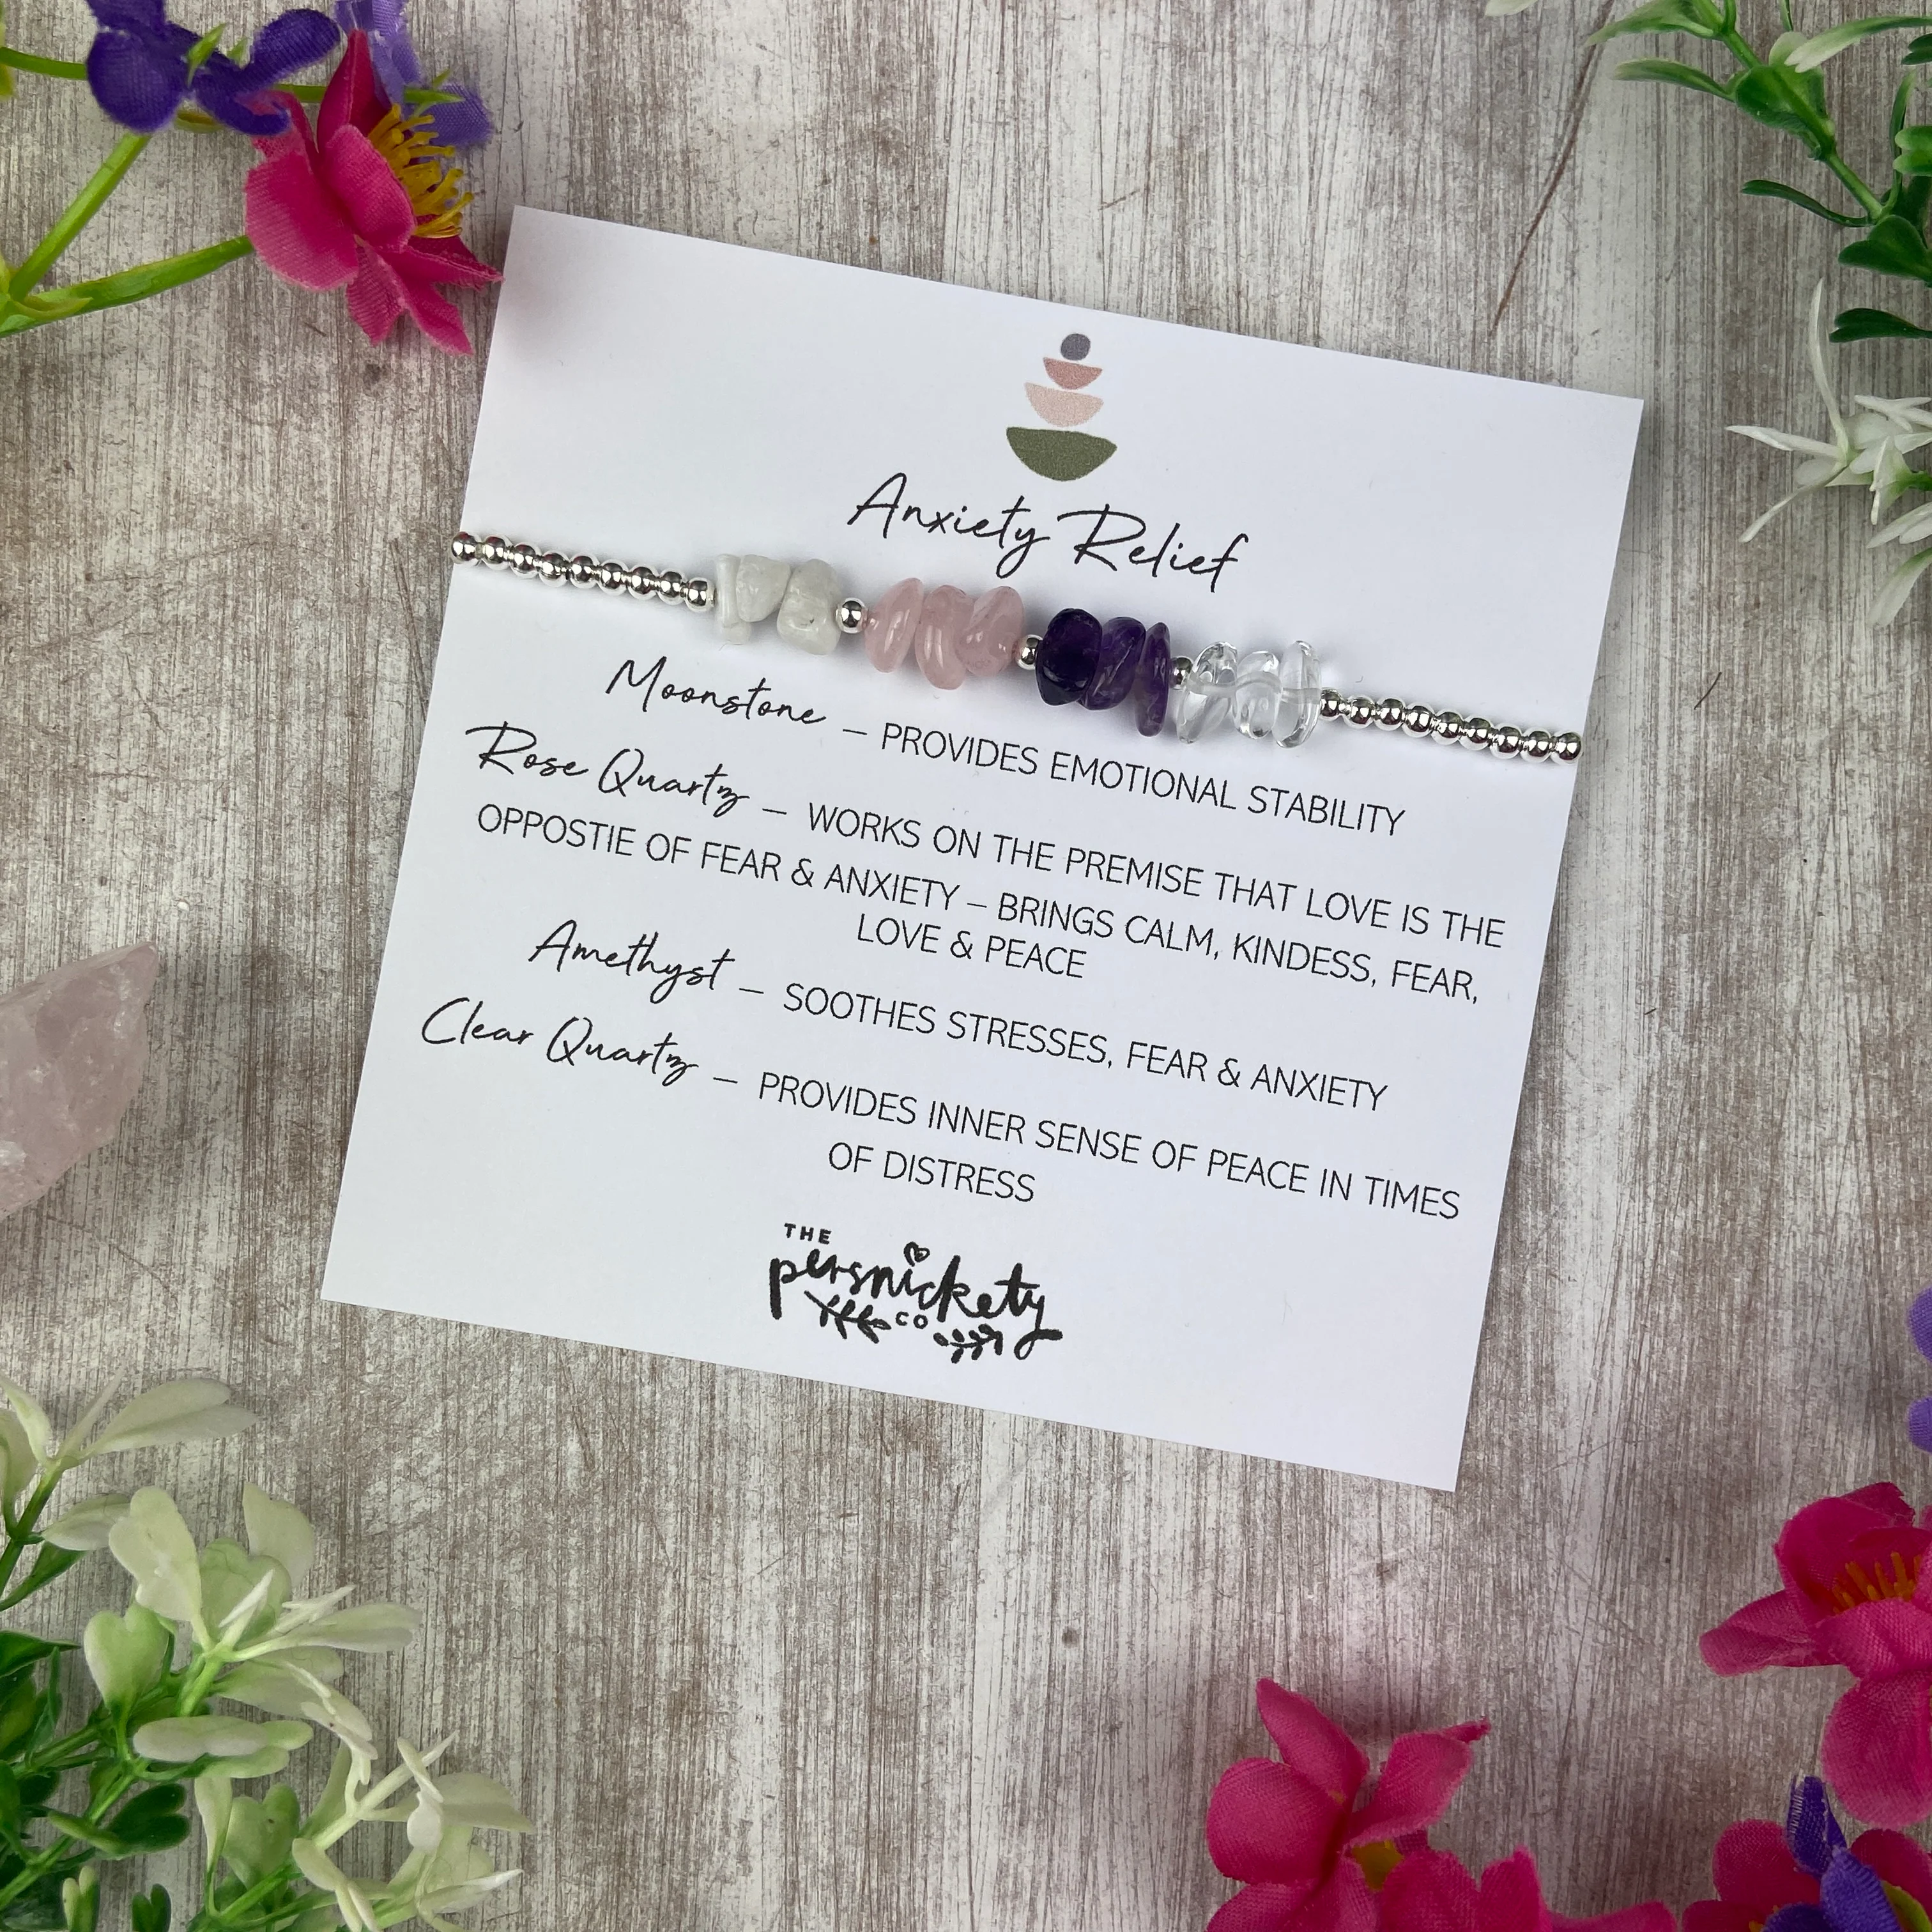 Anxiety Relief
Moonstone – PROVIDES EMOTIONAL STABILITY
Rose Quartz – WORKS ON THE PREMISE THAT LOVE IS THE
OPPOSTIE OF FEAR & ANXIETY – BRINGS CALM, KINDESS, FEAR,
LOVE & PEACE
Amethyst – SOOTHES STRESSES, FEAR & ANXIETY
Clear Quartz – PROVIDES INNER SENSE OF PEACE IN TIMES
OF DISTRESS
THE
persnickety
CO